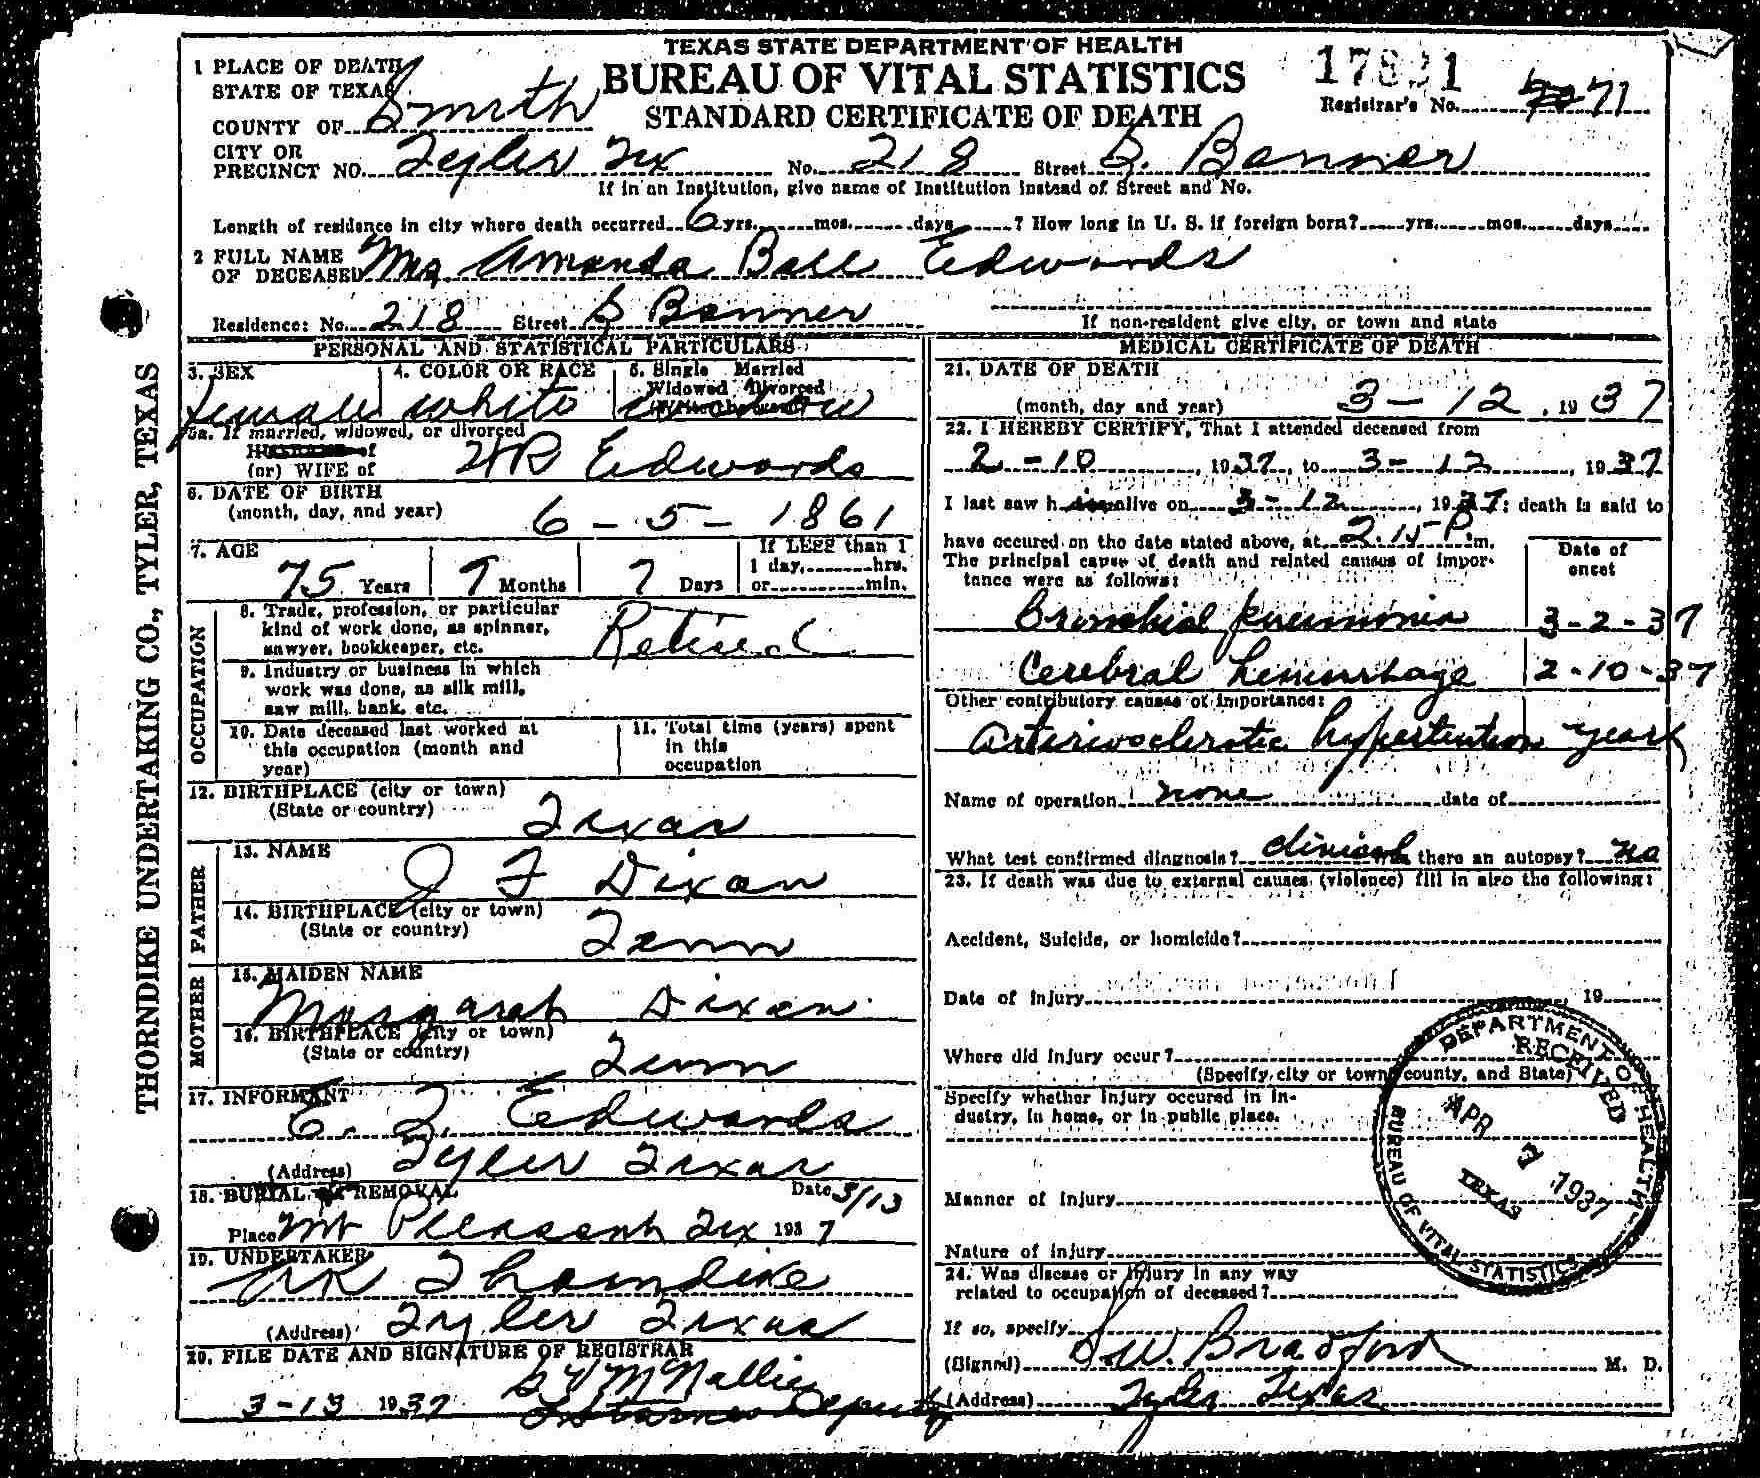 TEXAS STATE DEPARTMENT OF HEALTH
BUREAU OF VITAL STATISTICS
STANDARD CERTIFICATE OF DEATH
Registrar's No. 71
1 PLACE OF DEATH
STATE OF TEXAS
COUNTY OF Smith
CITY OR
PRECINCT NO. Tyler Tex No. 218 Street S. Bonner
If in an Institution, give name of Institution instead of Street and No.
Length of residence in city where death occurred 6 yrs. mos. days ? How long in U. S. if foreign born? yrs. mos. days
2 FULL NAME
OF DECEASED Mrs. Amanda Bell Edwards
Residence: No. 218 Street S Bonner
If non-resident give city, or town and state
PERSONAL AND STATISTICAL PARTICULARS
3. SEX 4. COLOR OR RACE 5. Single Married
Widowed Divorced
female white widow
5a. If married, widowed, or divorced
(or) WIFE of Edwards
6. DATE OF BIRTH
(month, day, and year) 6 - 5 - 1861
7. AGE
75 Years 9 Months 7 Days
If LESS than 1
1 day, hrs.
or min.
OCCUPATION
8. Trade, profession, or particular
kind of work done, as spinner,
sawyer, bookkeeper, etc. Retired
9. Industry or business in which
work was done, as silk mill,
saw mill, bank, etc.
10. Date deceased last worked at
this occupation (month and
year)
11. Total time (years) spent
in this
occupation
12. BIRTHPLACE (city or town)
(State or country) Texas
FATHER
13. NAME J F Dixon
14. BIRTHPLACE (city or town)
(State or country) Tenn
MOTHER
15. MAIDEN NAME
Margaret Dixon
16. BIRTHPLACE (city or town)
(State or country) Tenn
17. INFORMANT
E. Z. Edwards
(Address) Tyler Texas
18. BURIAL OR REMOVAL Date 3/13
Place Mt Pleasant Tex 1937
19. UNDERTAKER
Thorndike
(Address) Tyler Texas
20. FILE DATE AND SIGNATURE OF REGISTRAR
3-13 1937 McNallie
Deputy
MEDICAL CERTIFICATE OF DEATH
21. DATE OF DEATH
(month, day and year) 3 - 12, 1937
22. I HEREBY CERTIFY, That I attended deceased from
2 - 10, 1937, to 3 - 12, 1937
I last saw h alive on 3 - 12, 1937; death is said to
have occured on the date stated above, at 2.15 P. m.
The principal cause of death and related causes of impor-
tance were as follows:
Date of
onset
Bronchial pneumonia 3-2-37
Cerebral hemorrhage 2-10-37
Other contributory causes of importance:
Arteriosclerotic hypertention years
Name of operation none date of
What test confirmed diagnosis? clinical Was there an autopsy? no
23. If death was due to external causes (violence) fill in also the following:
Accident, Suicide, or homicide?
Date of injury 19
Where did injury occur?
(Specify city or town, county, and State)
Specify whether injury occured in in-
dustry, in home, or in public place.
Manner of injury
Nature of injury
24. Was disease or injury in any way
related to occupation of deceased?
If so, specify
(Signed) Bradford M. D.
(Address) Tyler Texas
DEPARTMENT OF HEALTH
RECEIVED
APR 1937
TEXAS
BUREAU OF VITAL STATISTICS
THORNDIKE UNDERTAKING CO., TYLER, TEXAS